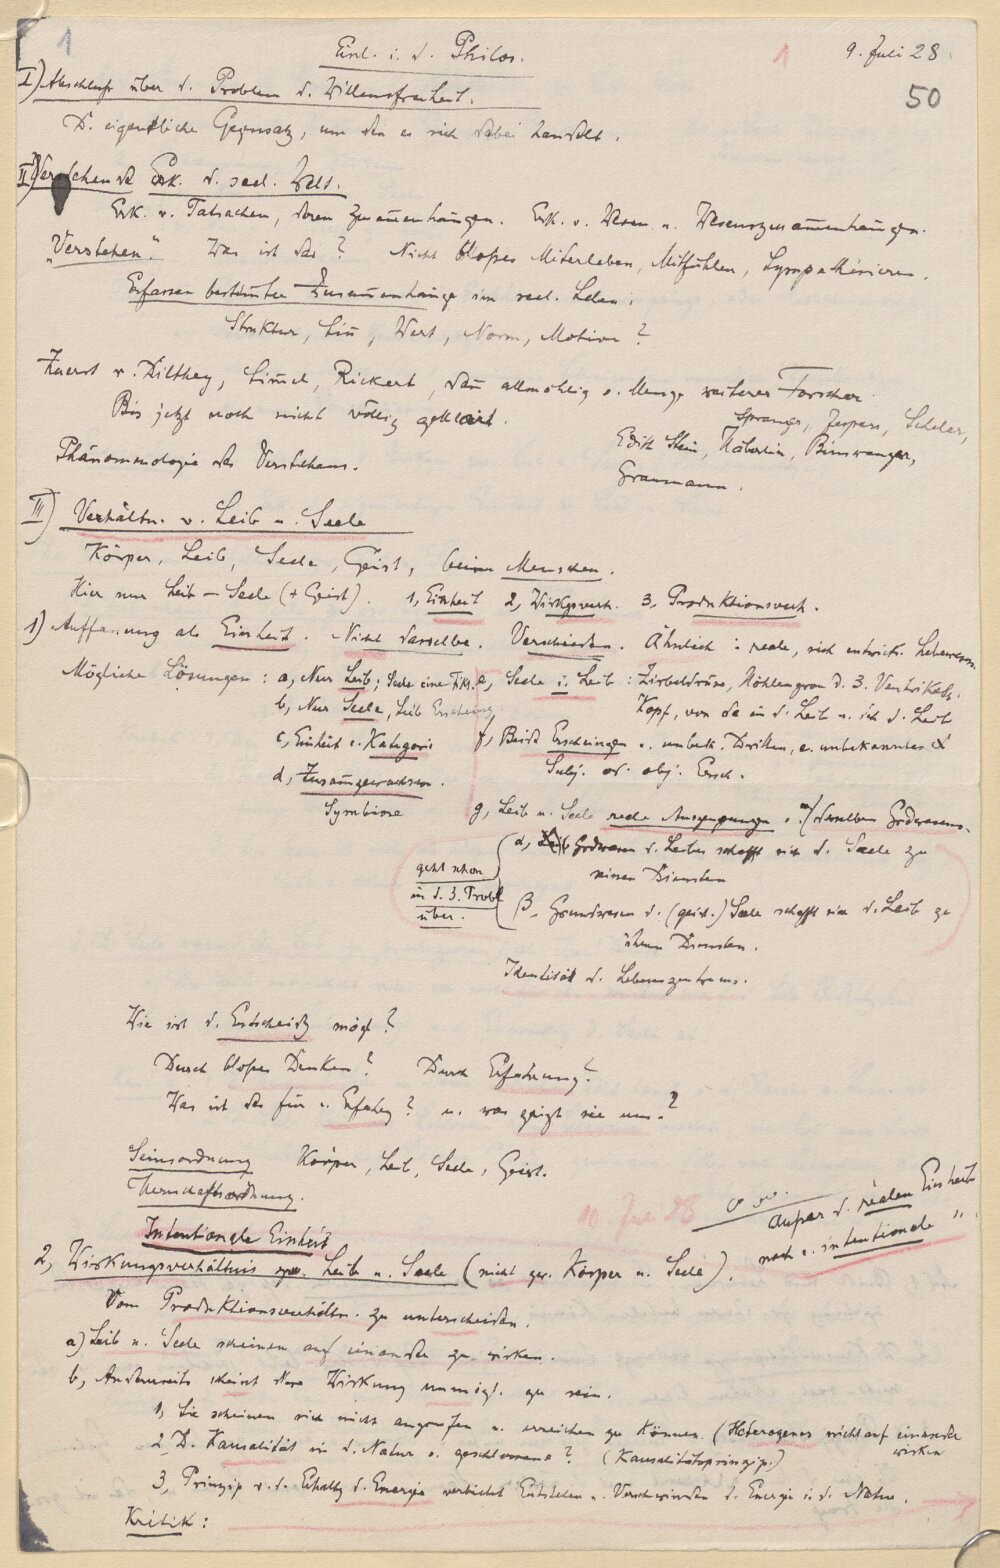 1
Einl. i. d. Philos.
1
9. Juli 28.
50
I) Abschluß über d. Problem d. Willensfreiheit.
D. eigentliche Gegensatz, um den es sich dabei handelt.
II) Verstehende Erk. d. seel. Welt.
Erk. v. Tatsachen, deren Zusammenhängen. Erk. v. Wesen u. Wesenszusammenhängen.
„Verstehen". Was ist das? Nicht bloßes Miterleben, Mitfühlen, Sympathisieren.
Erfassen bestimmter Zusammenhänge im seel. Leben;
Struktur, Sinn, Wert, Norm, Motive?
Zuerst v. Dilthey, Simmel, Rickert, dann allmählig e. Menge weiterer Forscher.
Spranger, Jaspers, Scheler,
Bis jetzt noch nicht völlig geklärt.
Edith Stein, Häberlin, Binswanger,
Graumann.
Phänomenologie des Verstehens.
III) Verhältn. v. Leib u. Seele
Körper, Leib, Seele, Geist, beim Menschen.
Hier nur Leib – Seele (+ Geist). 1, Einheit 2, Wirkgsverh. 3, Produktionsverh.
1) Auffassung als Einheit. Nicht dasselbe. Verschieden. Ähnlich: reale, sich entwick. Lebewesen
Mögliche Lösungen: a, Nur Leib; Seele eine Fkt.
b, Nur Seele, Leib Erscheing.
c, Einheit e. Kategorie
d, Zusammengewachsen.
Symbiose
e, Seele i. Leib: Zirbeldrüse, Höhlengrau d. 3. Ventrikels.
Kopf, von da in d. Leib u. durch d. Leib
f, Beide Erscheinungen e. unbek. Dritten, e. unbekannten X
Subj. od. obj. Ersch.
g, Leib u. Seele reale Ausprägungen e. u. desselben Grdwesens.
geht schon
in d. 3. Probl.
über.
α, Grdwesen d. Leibes schafft sich d. Seele zu
seinen Diensten
β, Grundwesen d. (geist.) Seele schafft sich d. Leib zu
ihren Diensten.
Identität d. Lebenszentrums.
Wie ist d. Entscheidg mögl?
Durch bloßes Denken? Durch Erfahrung?
Was ist das für e. Erfahrg? u. was zeigt sie uns?
Seinsordnung Körper, Leib, Seele, Geist.
Herrschaftsordnung.
10. Juli 28
außer d. realen Einheit
noch e. intentionale "
Intentionale Einheit
2, Wirkungsverhältnis zw. Leib u. Seele (nicht zw. Körper u. Seele).
Vom Produktionsverhältn. zu unterscheiden.
a) Leib u. Seele scheinen auf einander zu wirken.
b, Andererseits scheint diese Wirkung unmögl. zu sein.
1, Sie scheinen sich nicht angreifen u. erreichen zu können. (Heterogenes nicht auf einander
wirken
2, D. Kausalität in d. Natur e. geschlossene? (Kausalitätsprinzip.)
3, Prinzip v. d. Erhaltg d. Energie verbietet Entstehen u. Verschwinden d. Energie i. d. Natur.
Kritik: